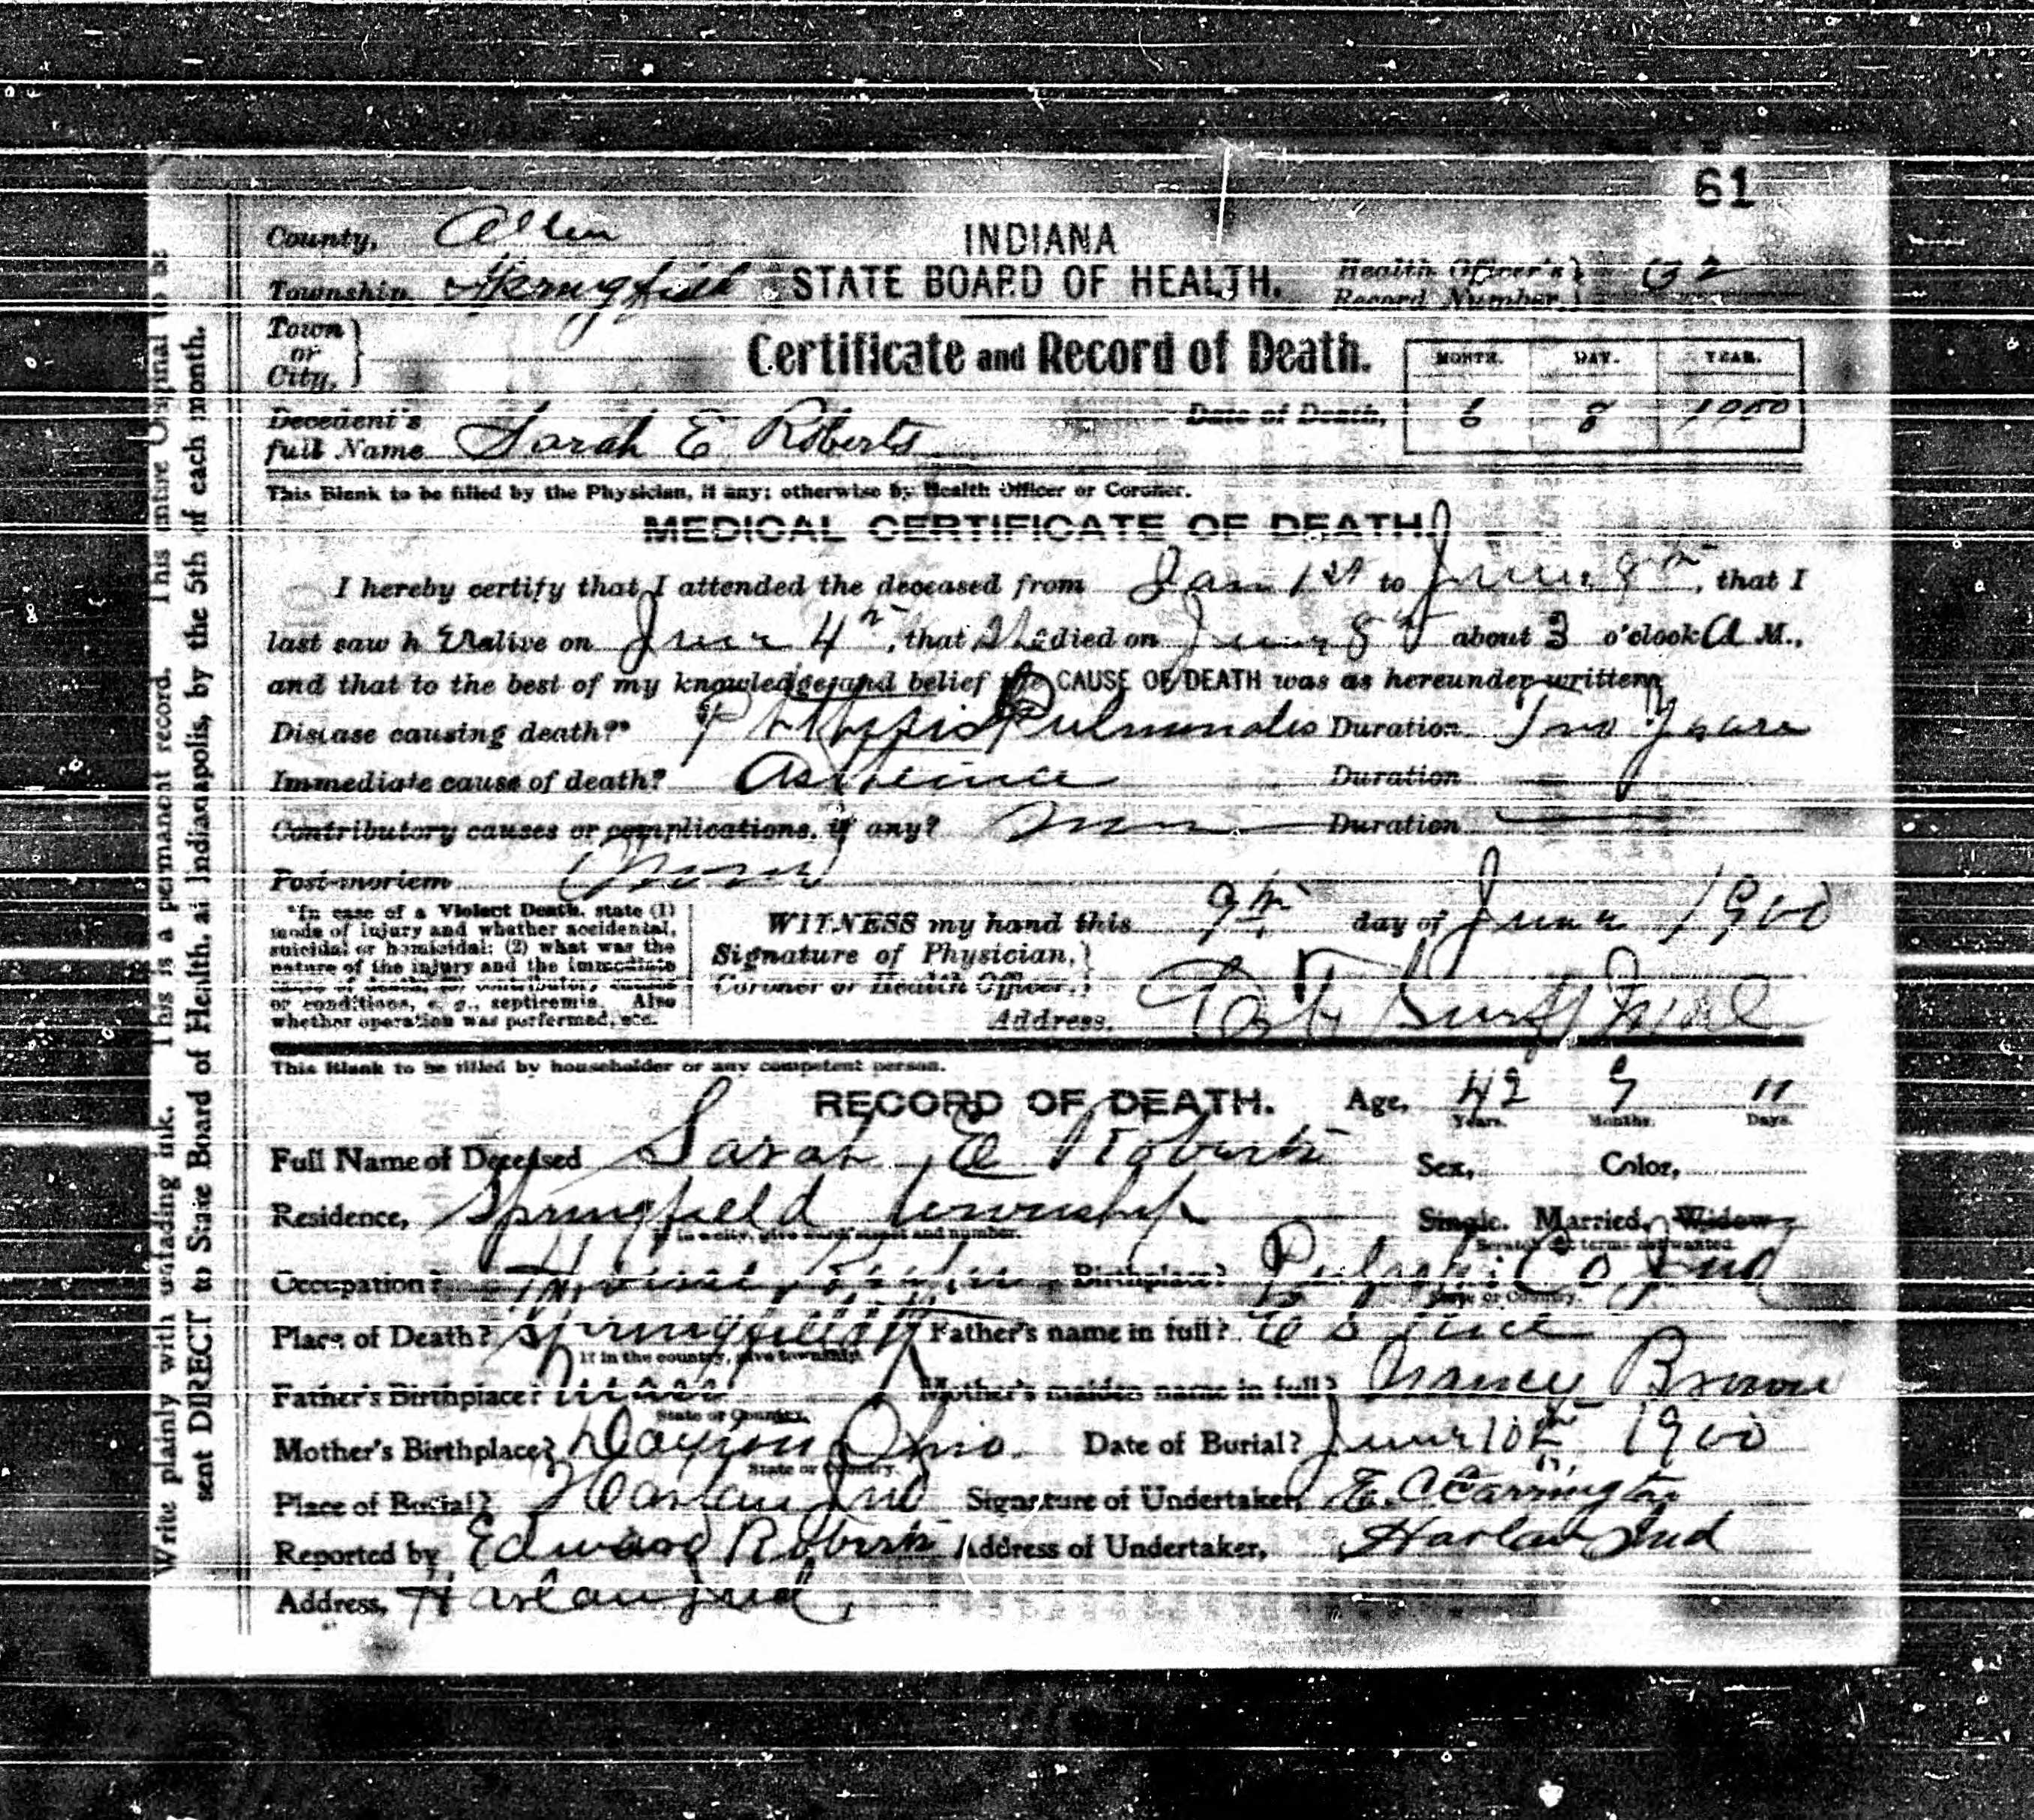 61
County, Allen
INDIANA
Township, Springfield STATE BOARD OF HEALTH. Health Officer's Record Number,
Town or City,
Certificate and Record of Death. MONTH. DAY. YEAR.
Decedent's full Name Sarah E Roberts Date of Death, 6 8 1900
This Blank to be filled by the Physician, if any; otherwise by Health Officer or Coroner.
MEDICAL CERTIFICATE OF DEATH.
I hereby certify that I attended the deceased from Jan 1st to June 8th, that I
last saw h er alive on June 4th, that she died on June 8th about 3 o'clock A M.,
and that to the best of my knowledge and belief the CAUSE OF DEATH was as hereunder written
Disease causing death?* Phthisis Pulmonalis Duration Two Years
Immediate cause of death? Duration
Contributory causes or complications, if any? Duration
Post-mortem
*In case of a Violent Death, state (1)
mode of injury and whether accidental,
suicidal or homicidal; (2) what was the
nature of the injury and the immediate
or conditions, e. g., septicemia. Also
whether operation was performed, etc.
WITNESS my hand this 9th day of June 1900
Signature of Physician,
Coroner or Health Officer,
Address,
This Blank to be filled by householder or any competent person.
RECORD OF DEATH. Age, 42 9 11
Years. Months. Days.
Full Name of Deceased Sarah E Roberts Sex, Color,
Residence, Springfield township Single. Married. Widow
If in a city, give ward, street and number. Scratch out terms not wanted.
Occupation? Birthplace? Pulaski Co Ind
State or Country.
Place of Death? Springfield Father's name in full?
If in the country, give township.
Father's Birthplace? Mother's maiden name in full? Nancy Brown
State or Country.
Mother's Birthplace? Dayton Ohio Date of Burial? June 10th 1900
State or Country.
Place of Burial? Harlan Ind Signature of Undertaker, E. C. Carrington
Reported by Edward Roberts Address of Undertaker, Harlan Ind
Address, Harlan Ind.
Write plainly with unfading ink. This is a permanent record. This entire Original to be
sent DIRECT to State Board of Health, at Indianapolis, by the 5th of each month.